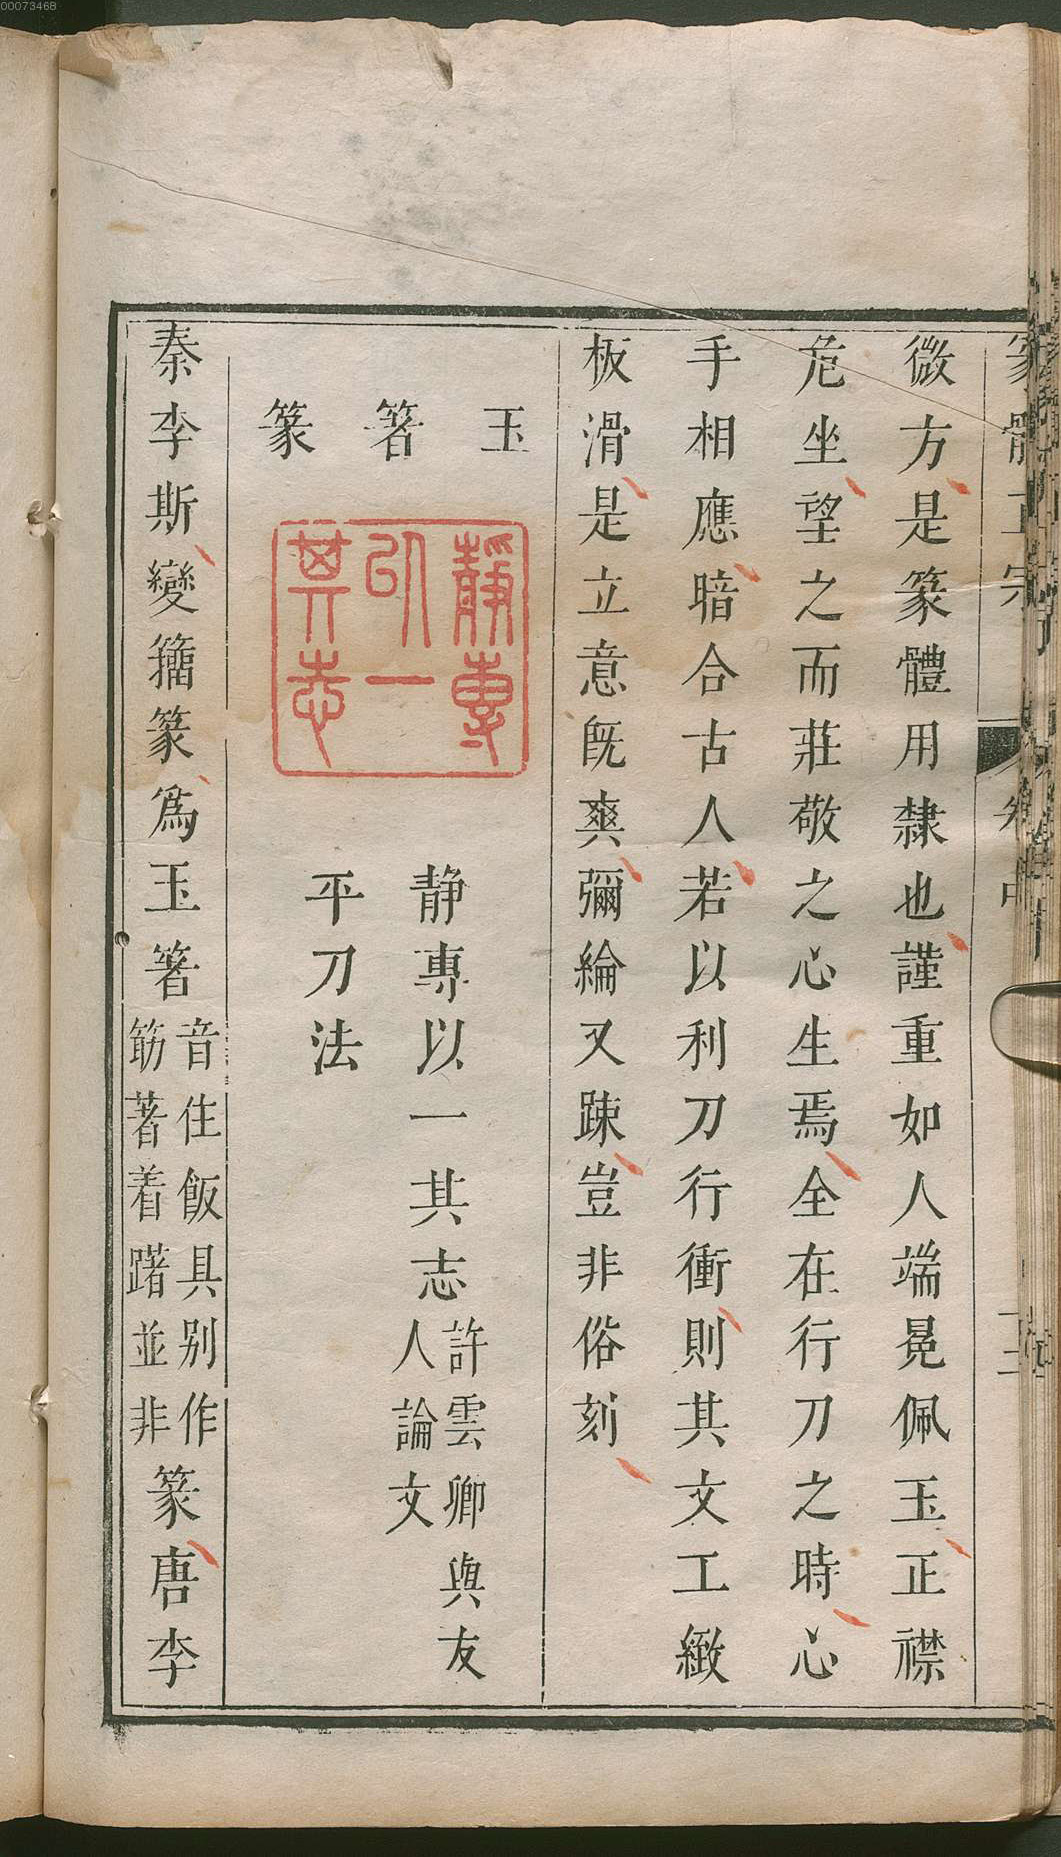 00073468
微方是篆體用隸也謹重如人端冕佩玉正襟
危坐望之而莊敬之心生焉全在行刀之時心
手相應暗合古人若以利刀行衝則其文工緻
板滑是立意旣爽彌綸又踈豈非俗刻
玉箸篆
靜專
㠯一
其志
静專以一其志
許雲卿與友
人論文
平刀法
秦李斯變籀篆爲玉箸
音住飯具别作
筯著着躇並非
篆唐李